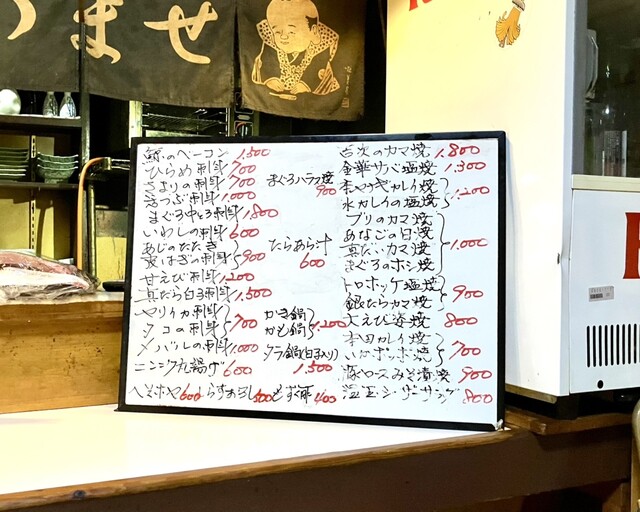 ませ
鯨のベーコン 1,500
ひらめ刺身 700
さよりの刺身 700
つぶ刺身 1,000
まぐろ中とろ刺身 1,800
いわしの刺身 600
あじのたたき
皮はぎの刺身 900
甘えび刺身 1,200
真だら白子刺身 1,500
ヤリイカ刺身
タコの刺身 700
メバルの刺身 1,000
ニンニク丸揚げ 600
ヘそホヤ 600 しらすおろし 500 もずく酢 400
まぐろハラス焼 900
たらあら汁 600
かき鍋
かも鍋 1,200
タラ鍋(白子入り) 1,500
吉次のカマ焼 1,800
金華サバ塩焼 1,300
赤ヤナギカレイ焼
水カレイの塩焼 1,200
ブリのカマ焼
あなごの白焼
真だいカマ焼
まぐろのホシ焼 1,000
トロホッケ塩焼
銀だらカマ焼 900
大えび姿焼 800
本田カレイ焼
いかポッポ焼 700
豚ロースみそ漬焼 900
温玉シーザーサラダ 800